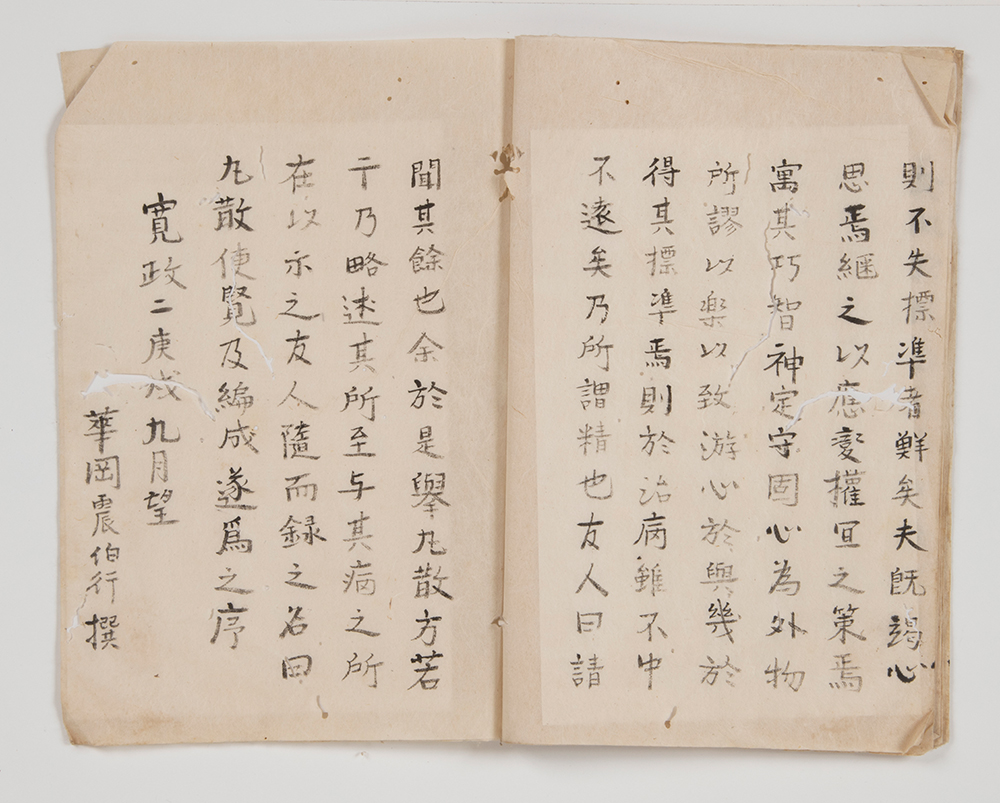 則不失標準者鮮矣夫既竭心
思焉継之以應変權宜之策焉
寓其巧智神定守固心為外物
所謬以楽以致游心於與幾於
得其標準焉則於治病雖不中
不遠矣乃所謂精也友人曰請
聞其餘也余於是擧丸散方若
干乃略述其所至与其病之所
在以示之友人隨而録之名曰
丸散便覽及編成遂爲之序
寛政二庚戌九月望
華岡震伯行撰